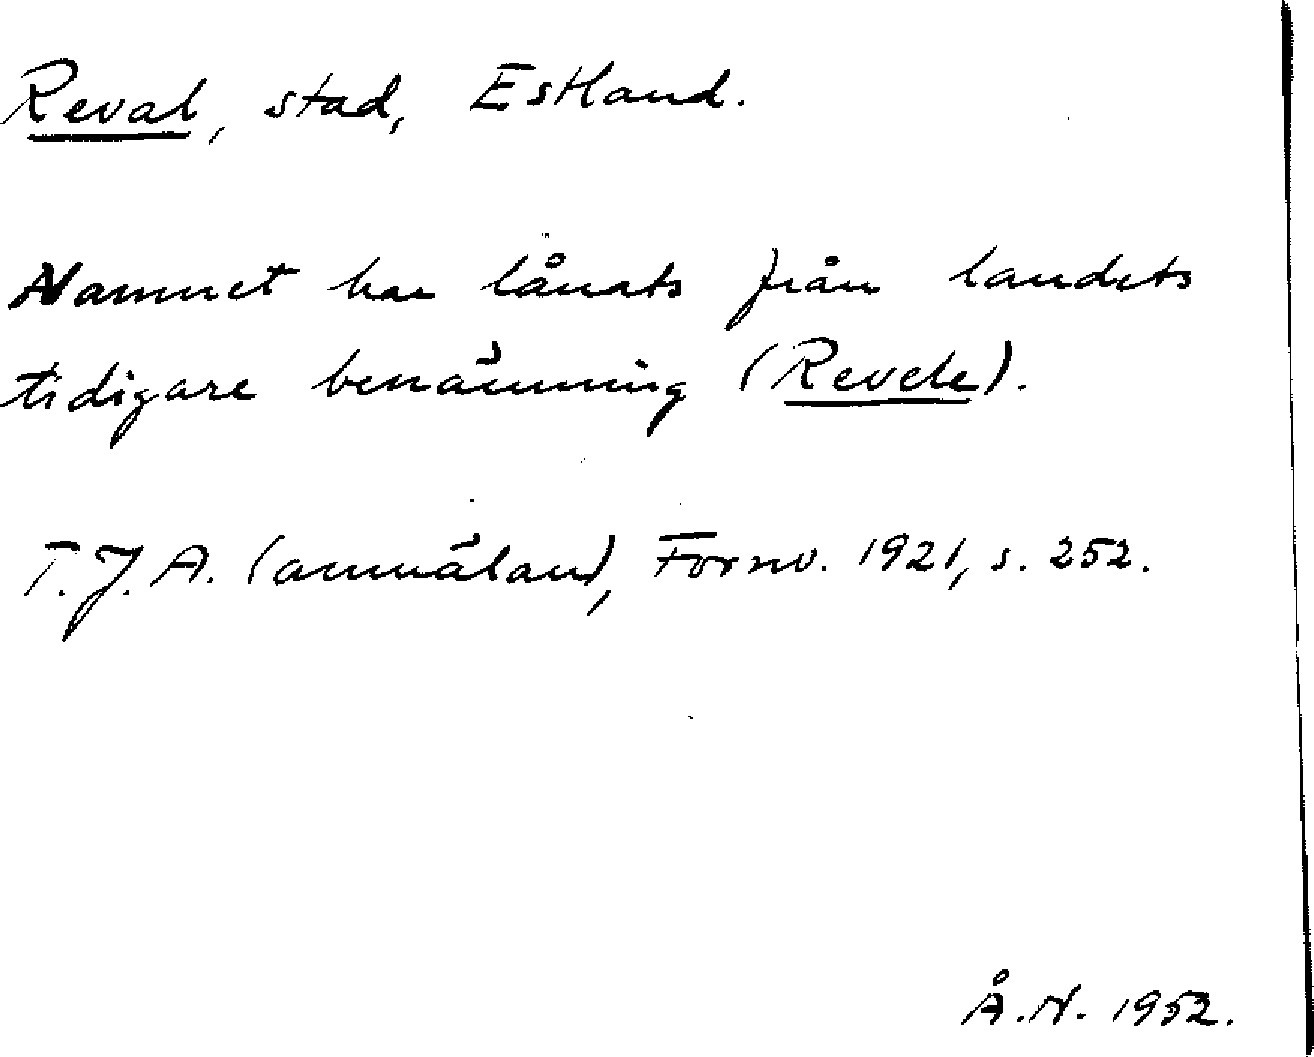 Reval, stad, Estland.
Namnet har lånats från landets
tidigare benämning (Revele).
T.J.A. (anmälan), Fornv. 1921, s. 252.
Å.N. 1952.